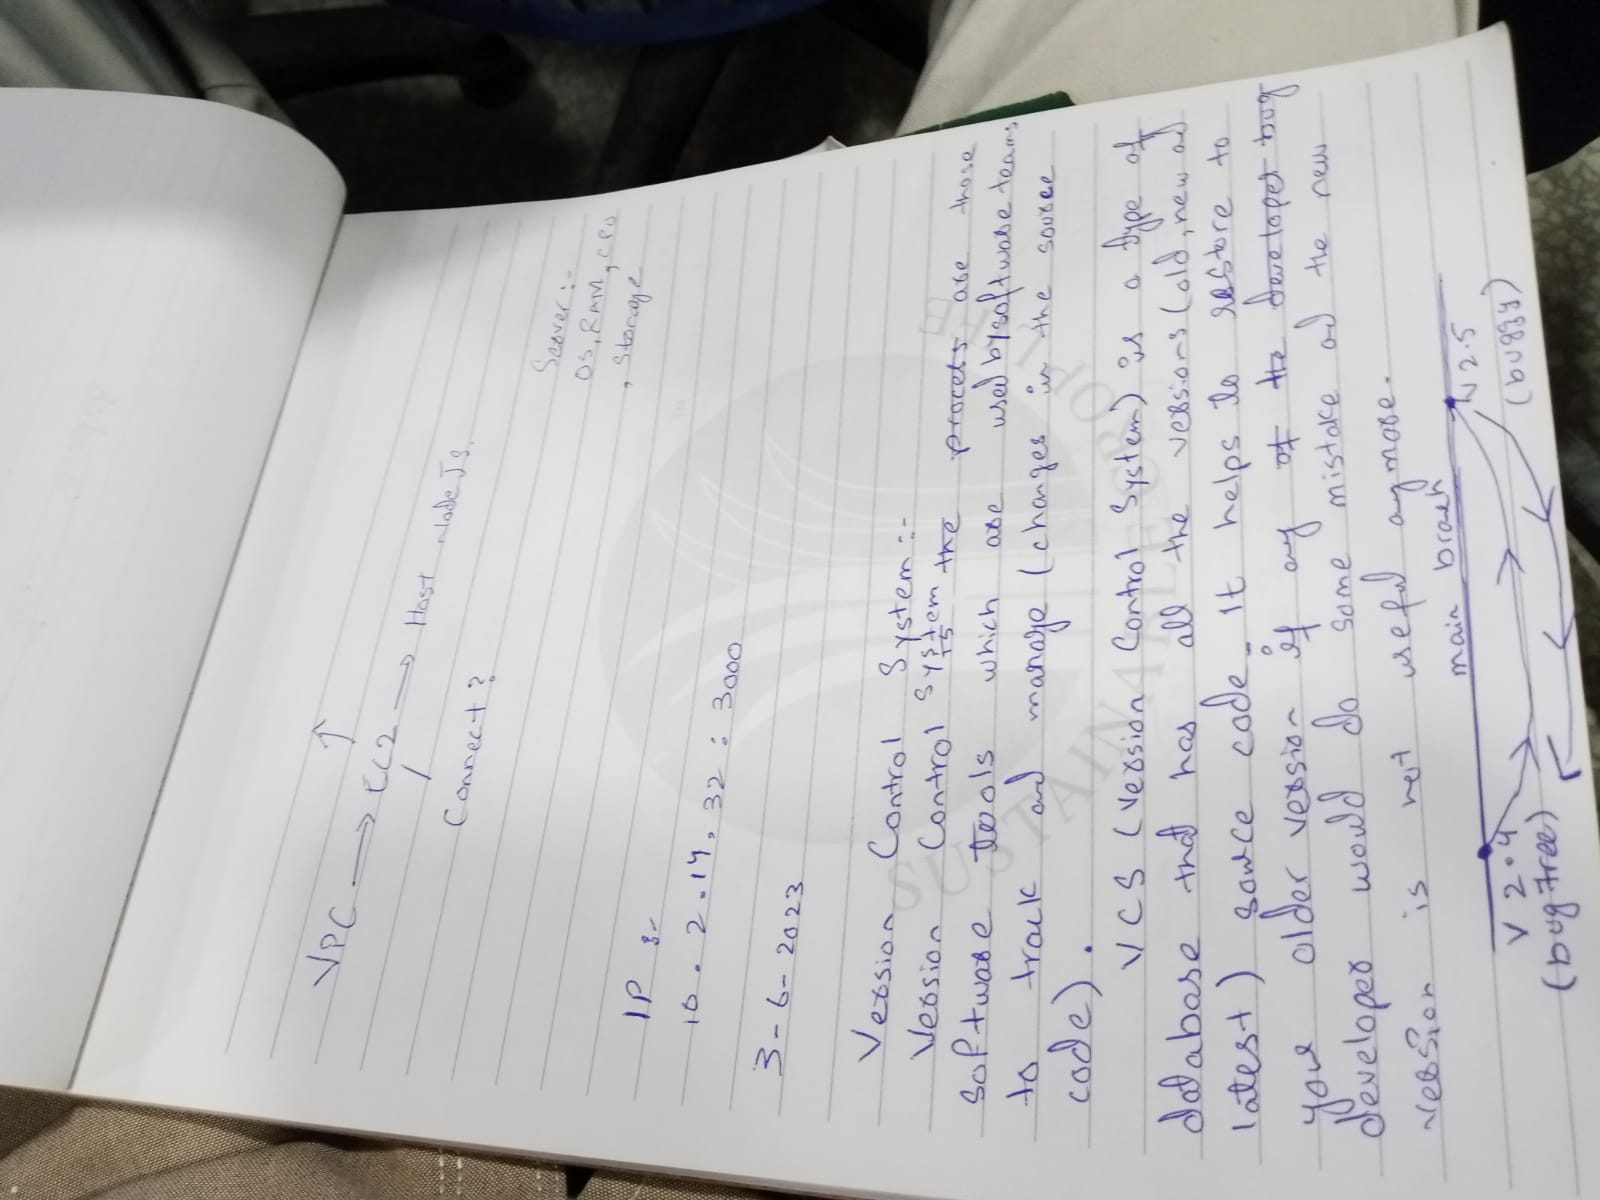 VPC → EC2 → Host Node Js.
Connect?
Scover :-
OS, RAM, CPU
, Storage
IP :-
10 . 2 . 14 . 32 : 3000
3 - 6 - 2023
Version Control System :-
Version Control System the process are those
software tools which are used by software teams
to track and manage (changes in the source
code).
VCS (Version Control System) is a type of
database that has all the versions (old, new and
latest) source code. It helps to restore to
your older version if any of the developer bug
developer would do some mistake and the new
version is not useful anymore.
main branch
V 2.4
(bug free)
V 2.5
(buggy)
SUSTAINABLE